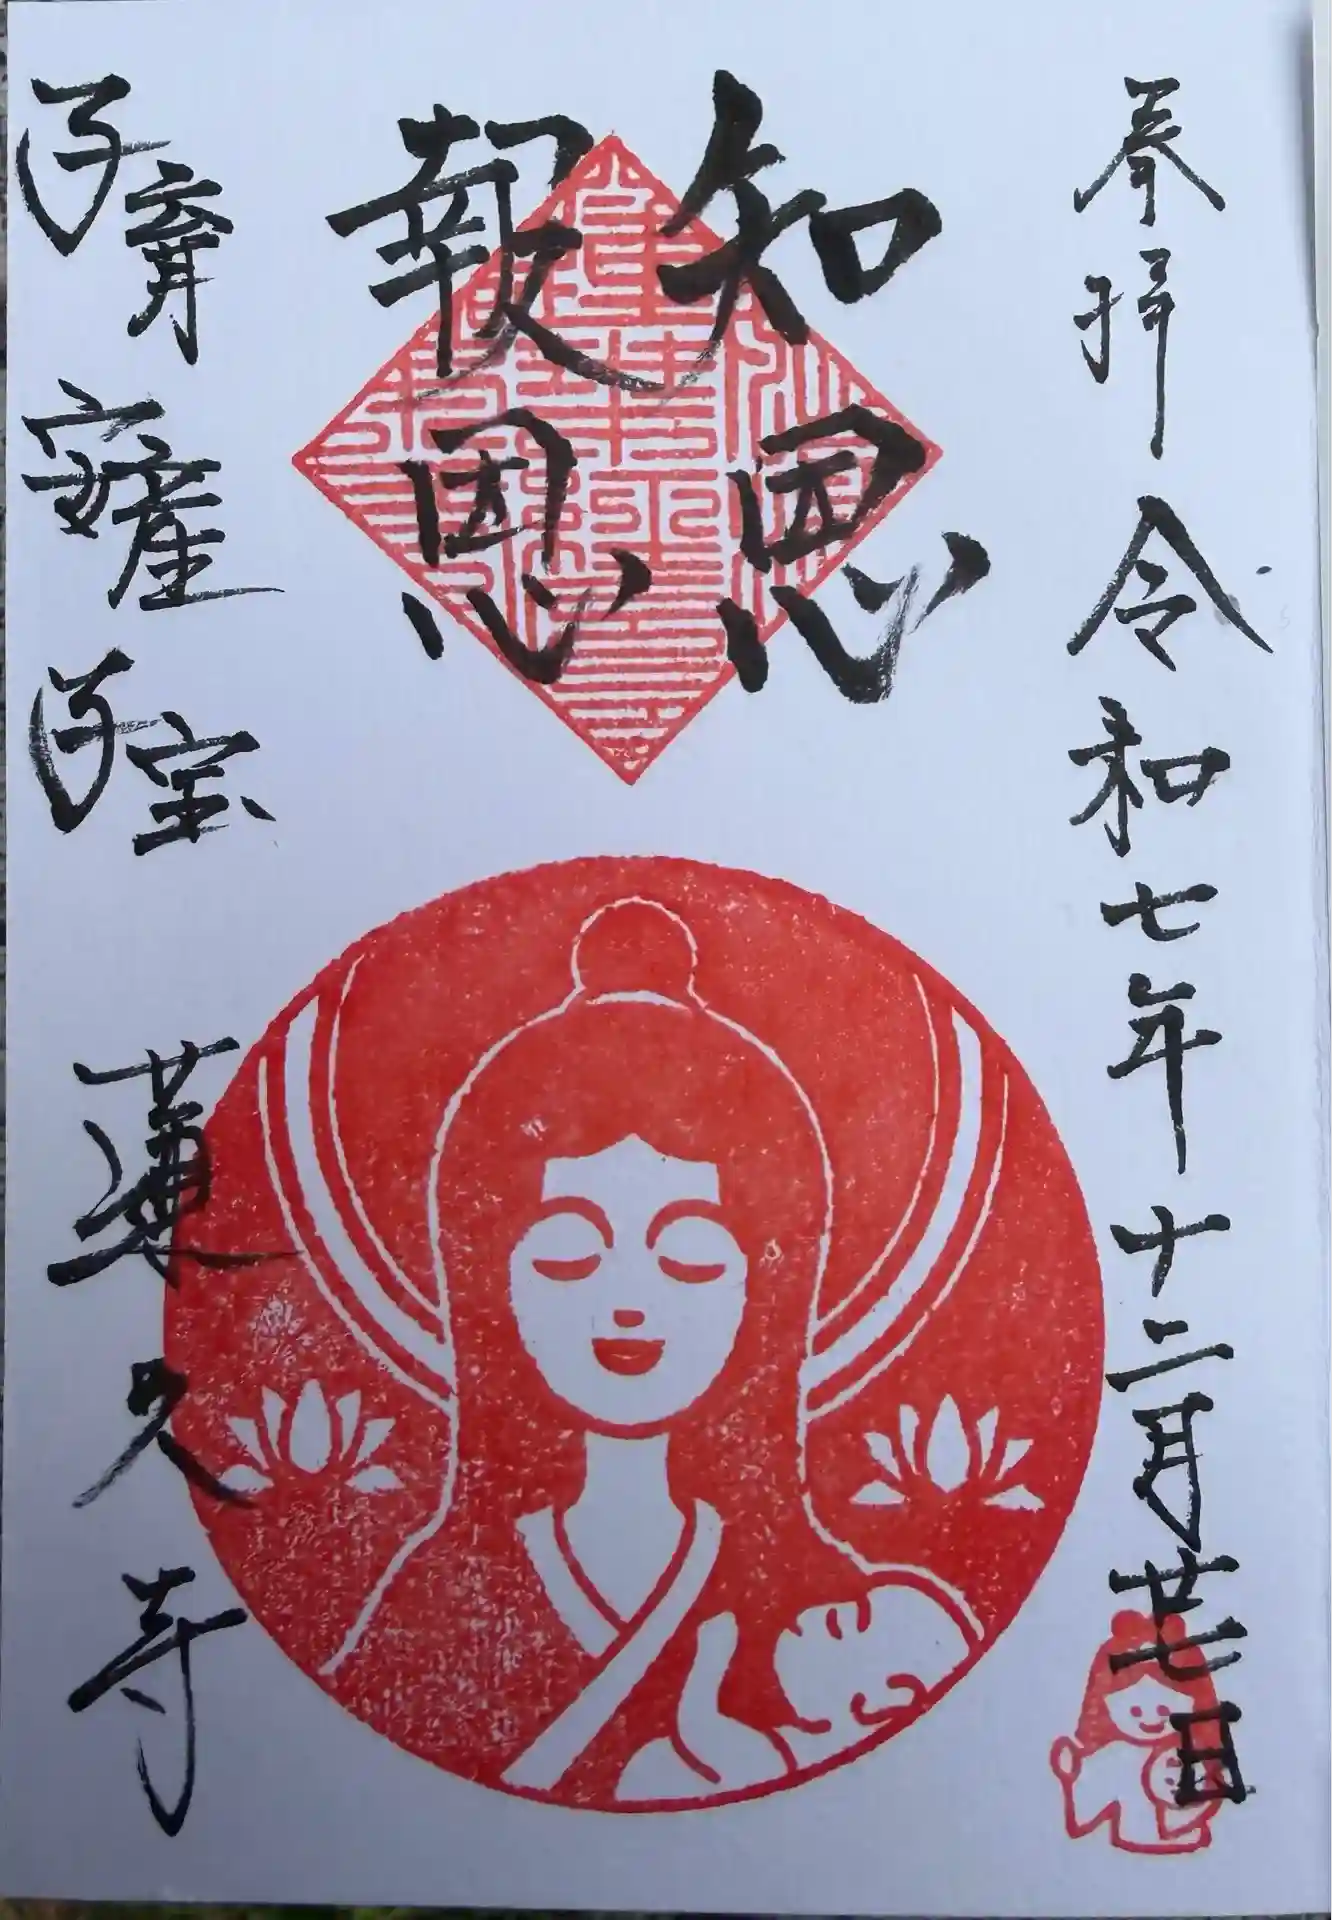 奉拝 令和七年十二月廿七日
知恩
報恩
子育 安産 子宝 蓮久寺